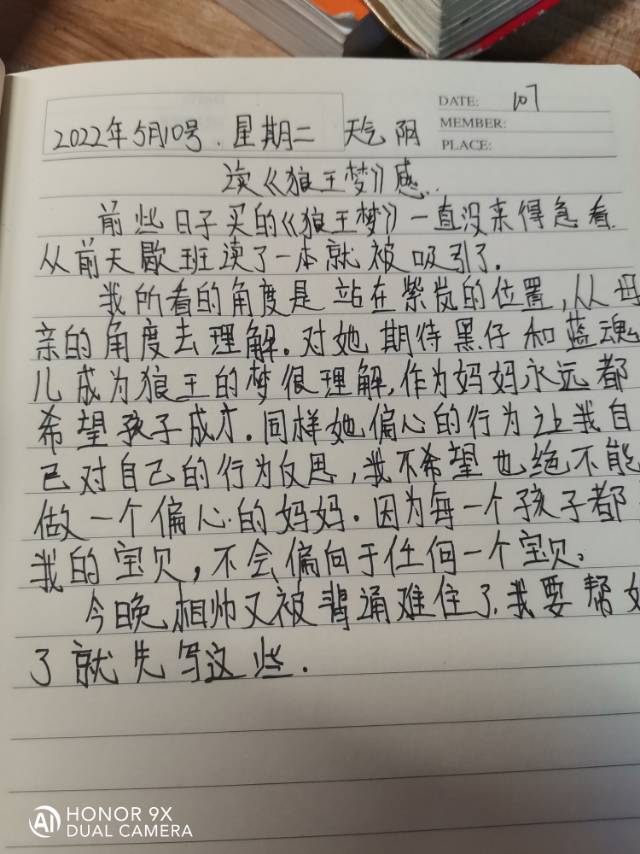 DATE: 107
MEMBER:
PLACE:
2022年5月10号.星期二 天气 阴
读《狼王梦》感..
前些日子买的《狼王梦》一直没来得急看.
从前天歇班读了一本就被吸引了.
我所看的角度是站在紫岚的位置,从母
亲的角度去理解.对她期待黑仔和蓝魂
儿成为狼王的梦很理解,作为妈妈永远都
希望孩子成才.同样她偏心的行为让我自
己对自己的行为反思,我不希望也绝不能
做一个偏心的妈妈.因为每一个孩子都
我的宝贝,不会偏向于任何一个宝贝.
今晚相帅又被背诵难住了.我要帮
了就先写这些.
HONOR 9X
AI DUAL CAMERA